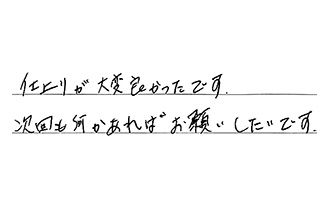 仕上りが大変良かったです.
次回も何かあればお願いしたいです.